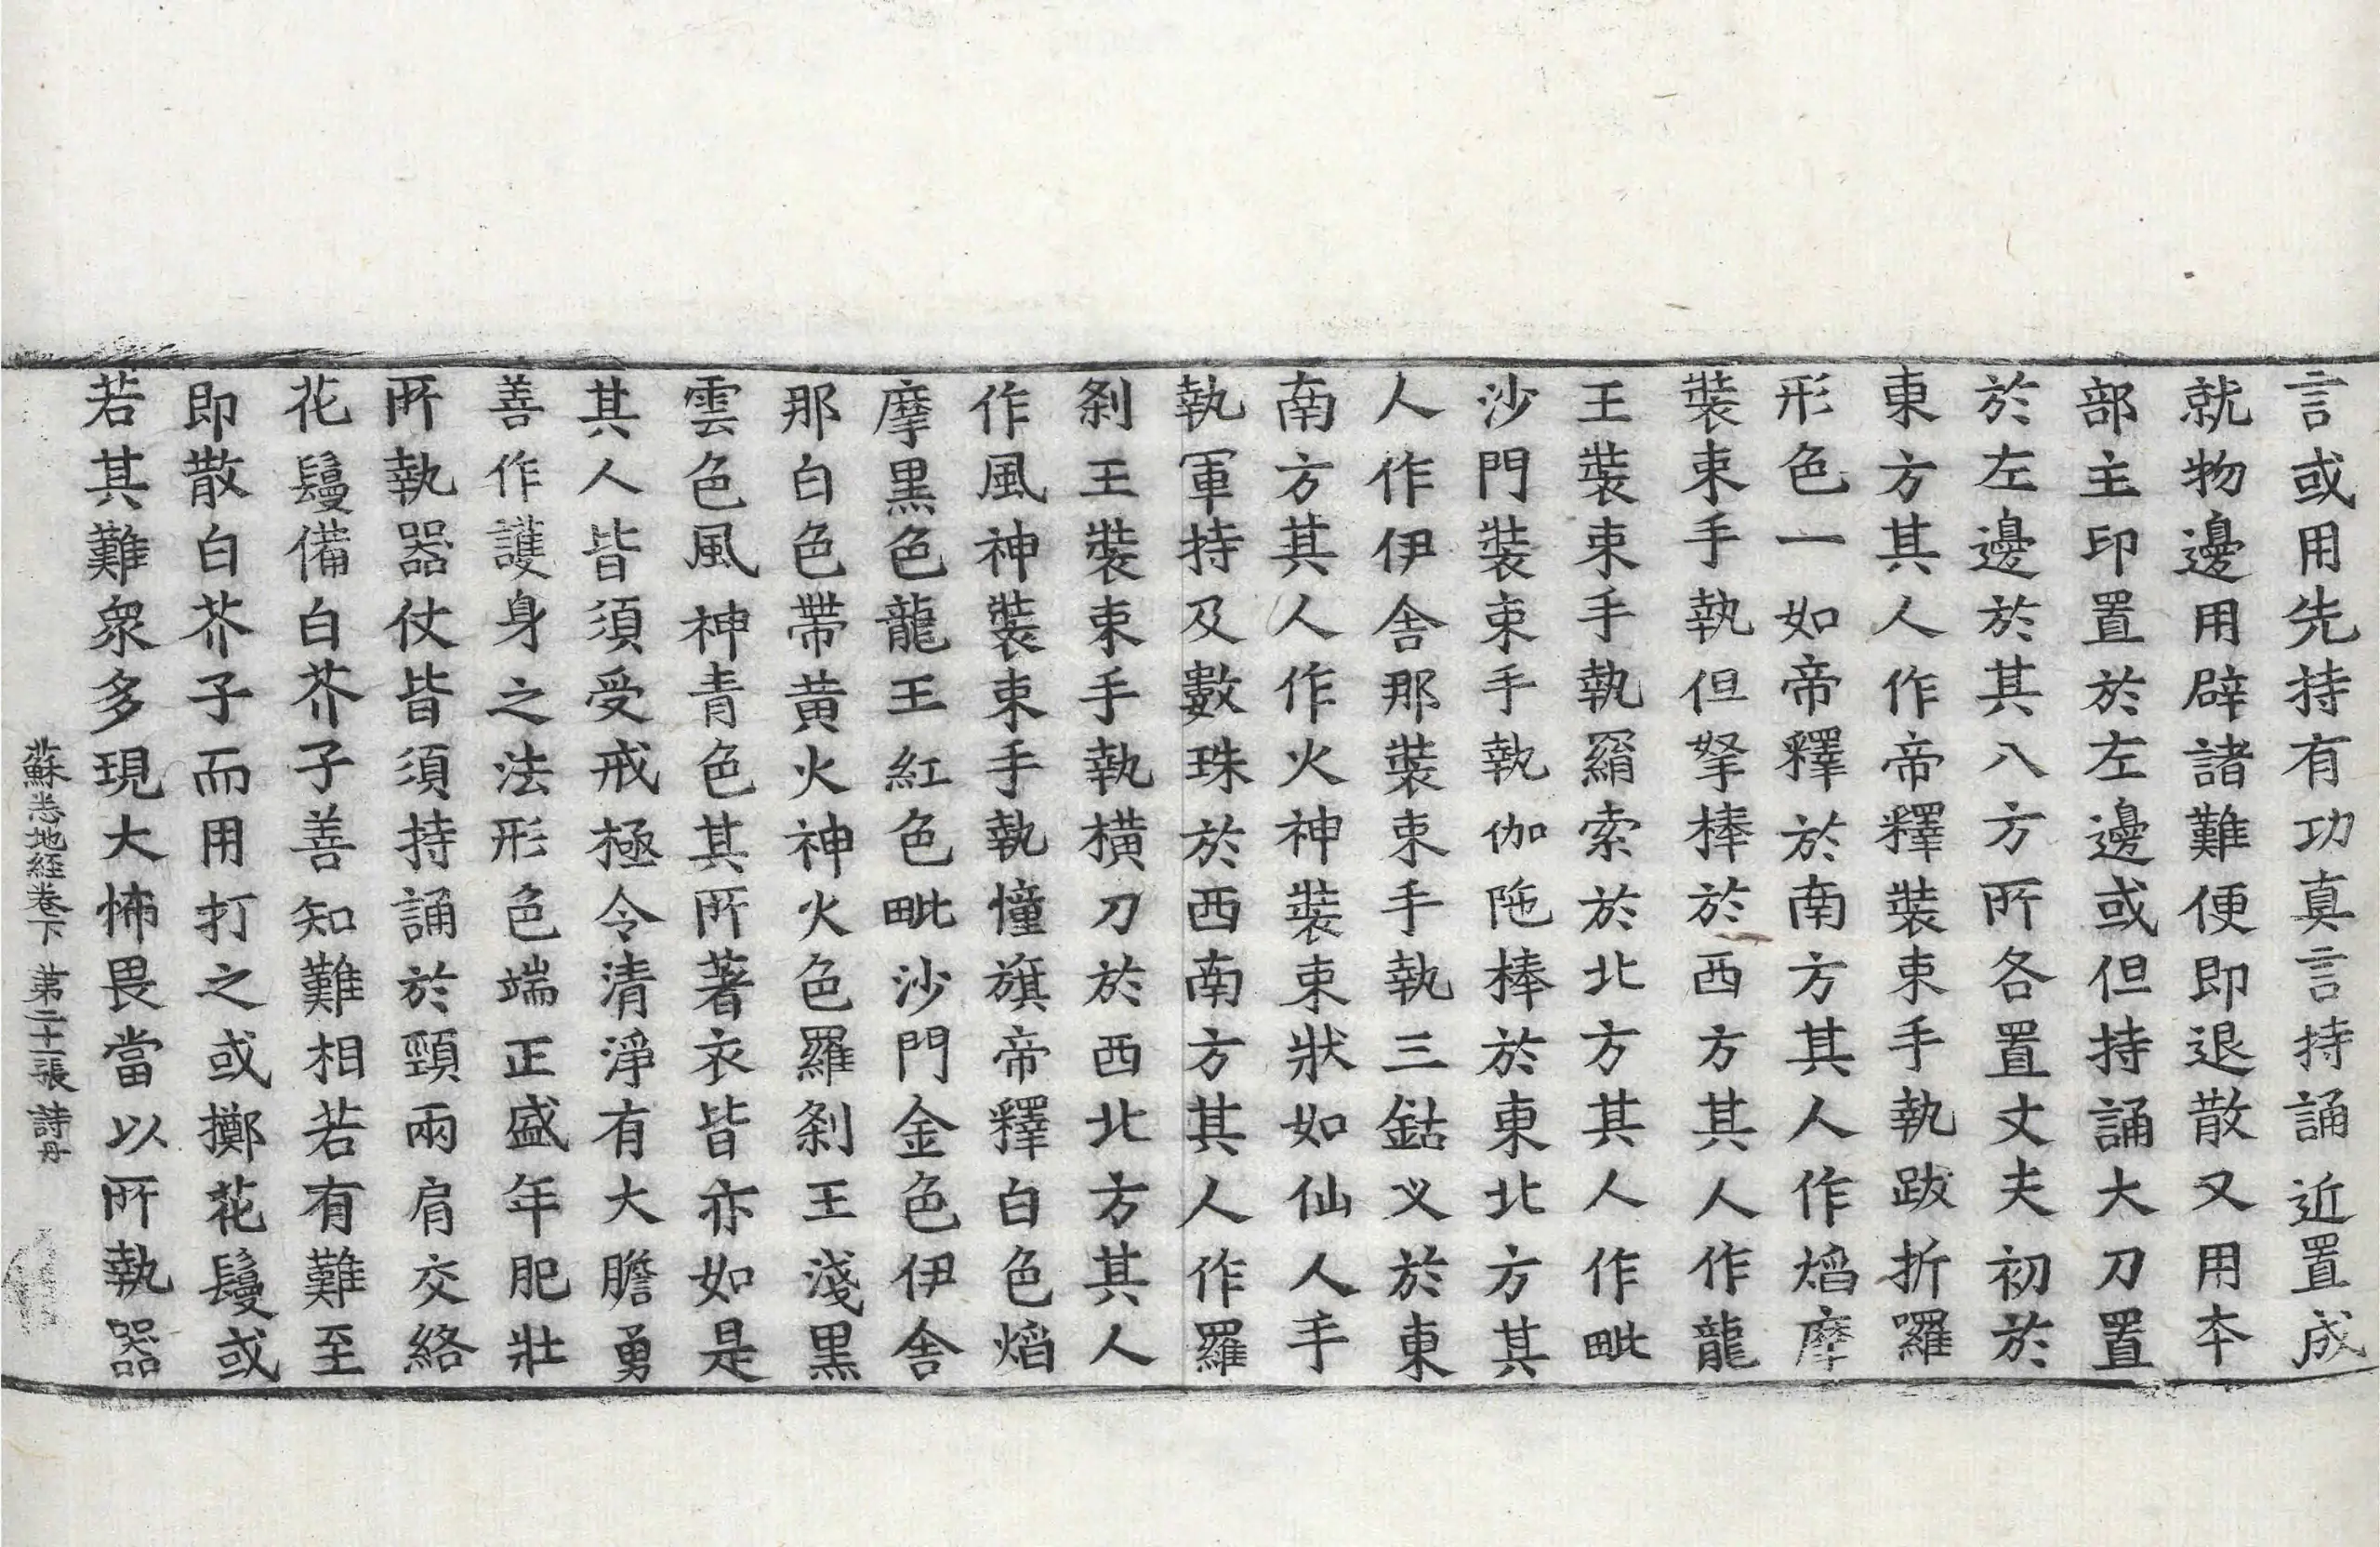 言或用先持有功真言持誦近置成
就物邊用辟諸難便即退散又用本
部主印置於左邊或但持誦大刀置
於左邊於其八方所各置丈夫初於
東方其人作帝釋裝束手執跋折囉
形色一如帝釋於南方其人作焰摩
裝束手執但拏棒於西方其人作龍
王裝束手執羂索於北方其人作毗
沙門裝束手執伽陁棒於東北方其
人作伊舍那裝束手執三鈷叉於東
南方其人作火神裝束狀如仙人手
執軍持及數珠於西南方其人作羅
剎王裝束手執橫刀於西北方其人
作風神裝束手執憧旗帝釋白色焰
摩黑色龍王紅色毗沙門金色伊舍
那白色帶黃火神火色羅剎王淺黑
雲色風神青色其所著衣皆亦如是
其人皆須受戒極令清淨有大膽勇
善作護身之法形色端正盛年肥壯
所執器仗皆須持誦於頸兩肩交絡
花鬘備白芥子善知難相若有難至
即散白芥子而用打之或擲花鬘或
若其難衆多現大怖畏當以所執器
蘇悉地經卷下 第二十一張 詩丹